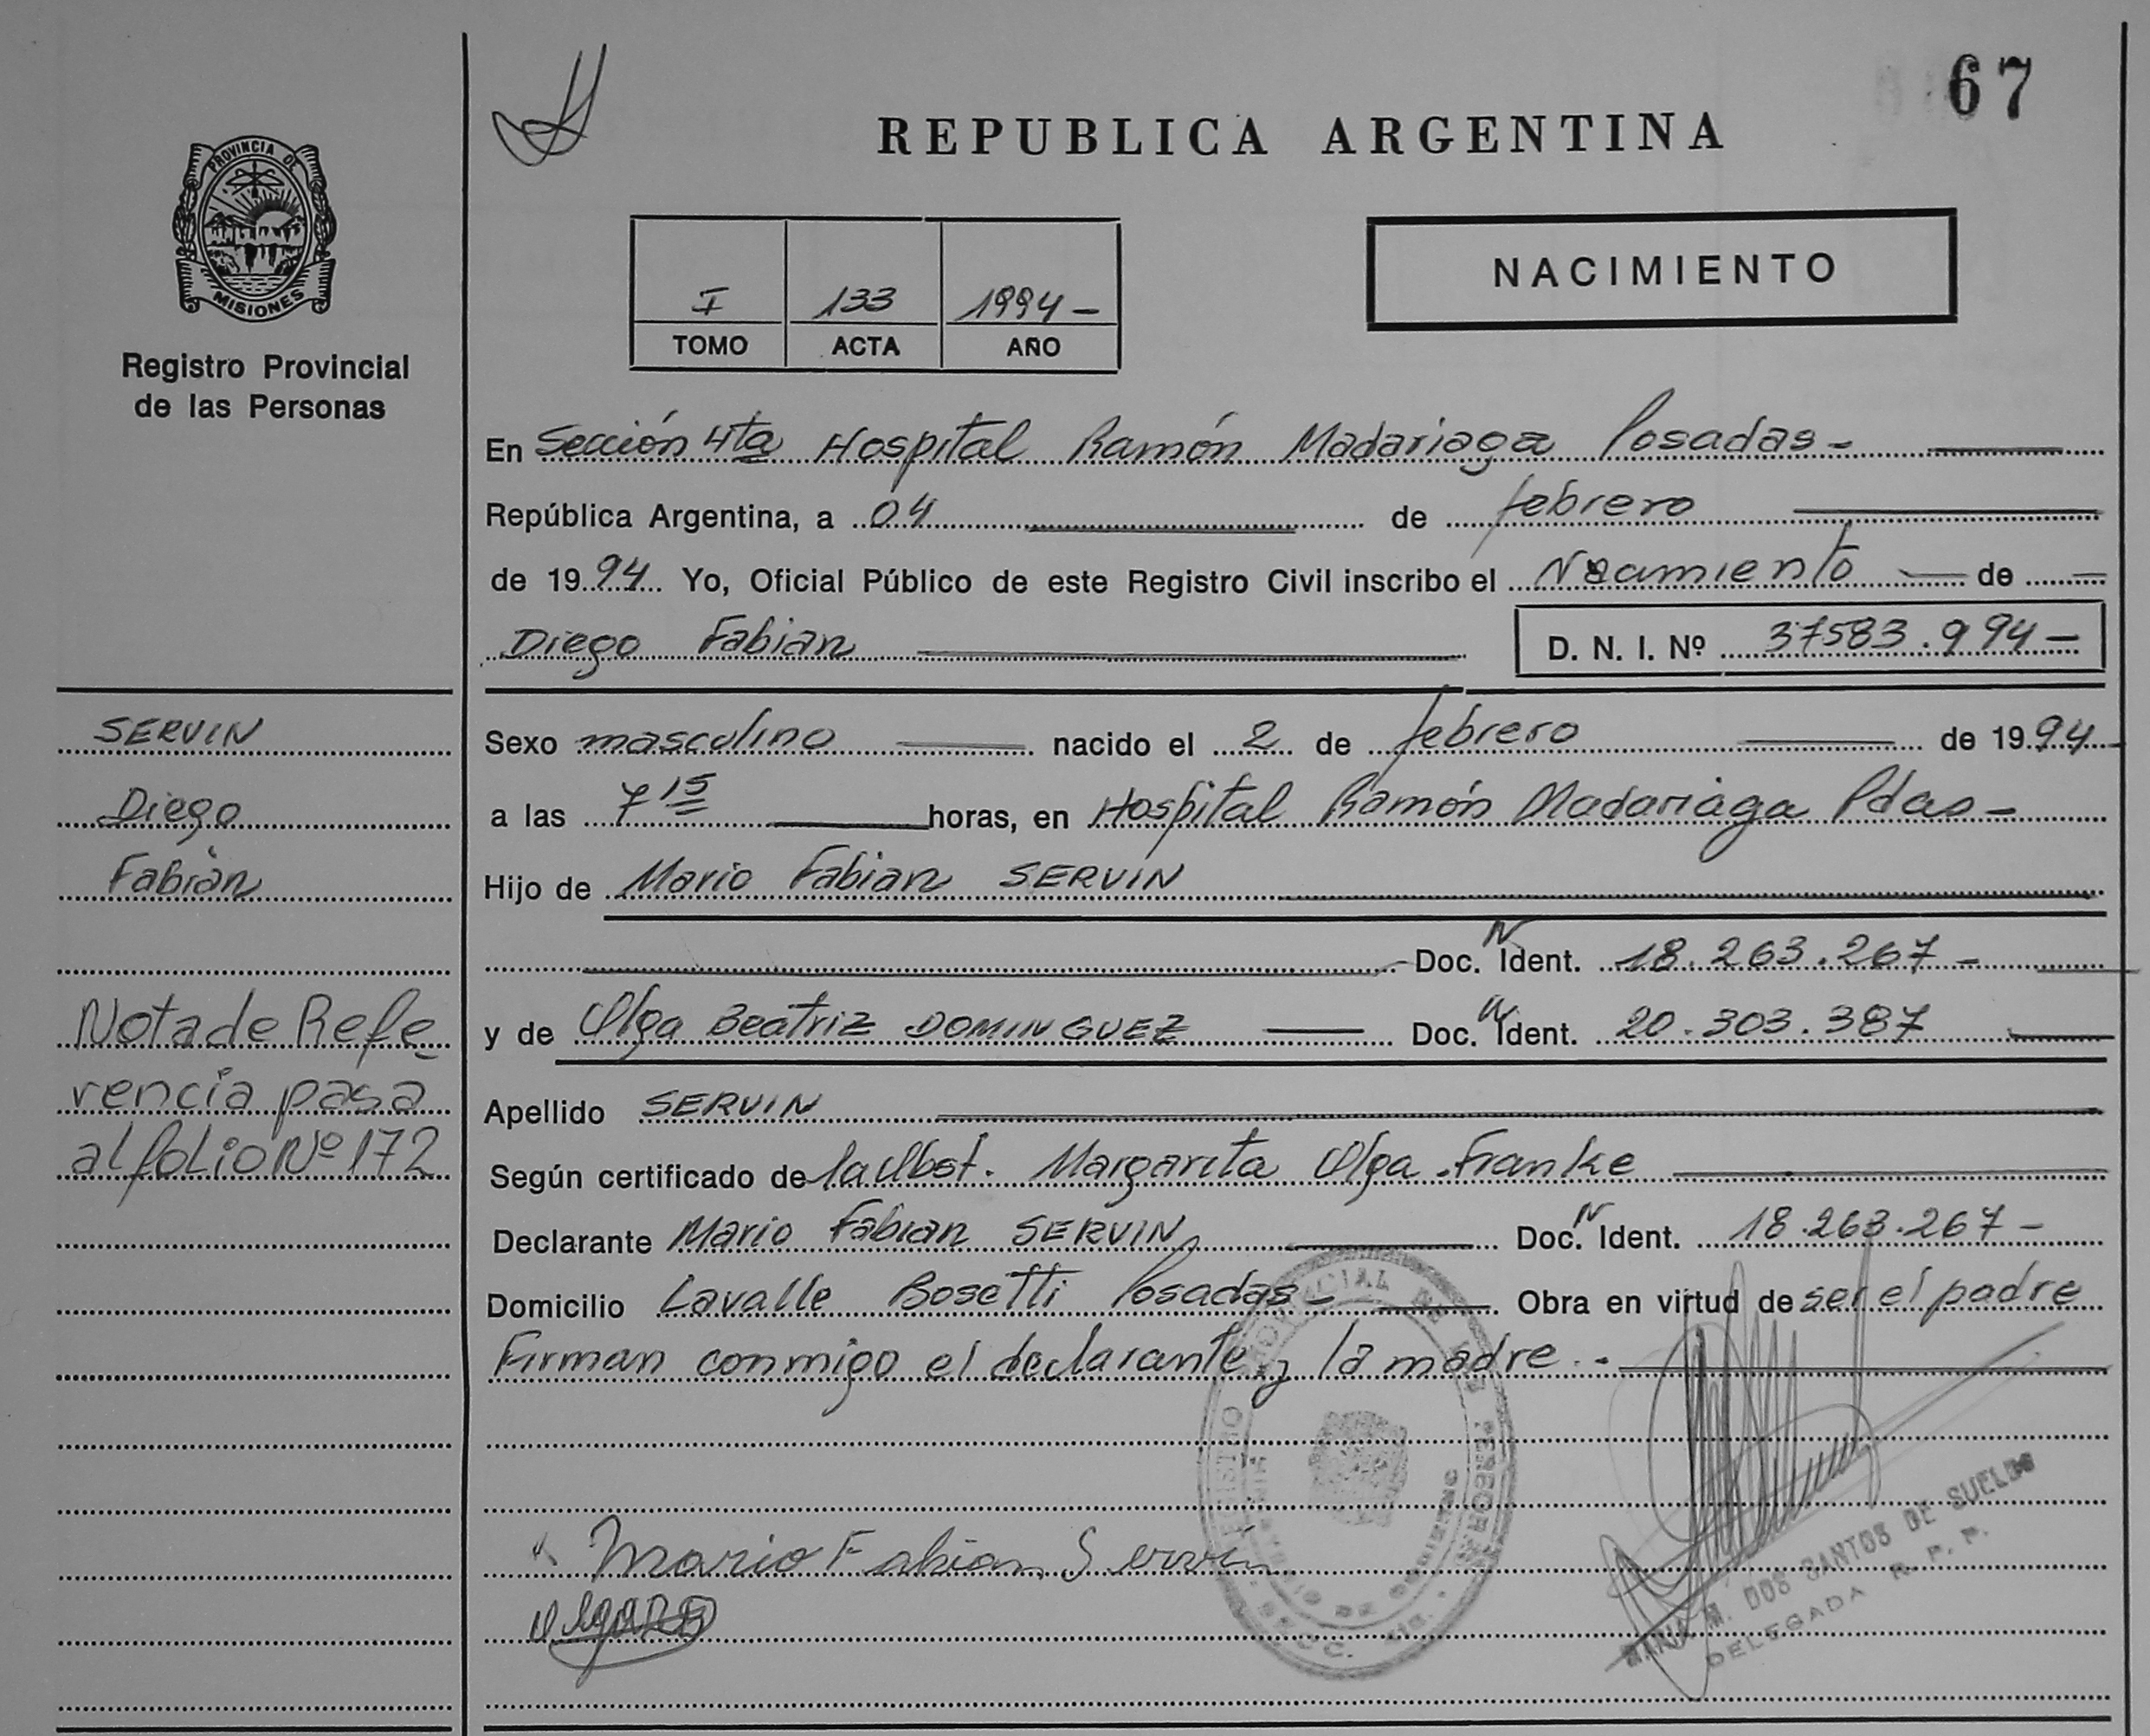 67
REPUBLICA ARGENTINA
PROVINCIA DE
MISIONES
Registro Provincial
de las Personas
I 133 1994-
TOMO ACTA AÑO
NACIMIENTO
En Sección 4ta Hospital Ramón Madariaga Posadas-
República Argentina, a 04 de febrero
de 1994 Yo, Oficial Público de este Registro Civil inscribo el Nacamiento de
Diego Fabian D. N. I. Nº 37583.994-
SERVIN
Diego
Fabián
Nota de Refe-
rencia pasa
al folio Nº 172
Sexo masculino nacido el 2 de febrero de 1994
a las 7 15 horas, en Hospital Ramón Madariaga Pdas-
Hijo de Mario Fabian SERVIN
Doc. N Ident. 18.263.267-
y de Olga Beatriz DOMINGUEZ Doc. N Ident. 20.303.387
Apellido SERVIN
Según certificado de la Obst. Margarita Olga Franke
Declarante Mario Fabian SERVIN Doc. N Ident. 18.263.267-
Domicilio Lavalle Bosetti Posadas- Obra en virtud de ser el padre
Firman conmigo el declarante y la madre.-
Mario Fabian Servin
M. DOS SANTOS DE SUELDO
DELEGADA R. P. P.